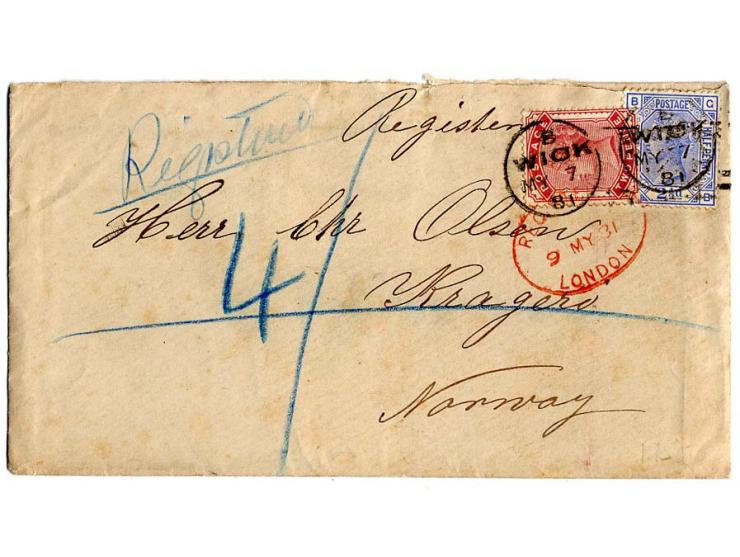 Registered
Register
Herr Chr Olsen
4/
Kragerö
Norway
B
WICK
MY 7
81
B POSTAGE G
HALFPENNY
2½d
WICK
MY 7
81
9 MY 81
LONDON